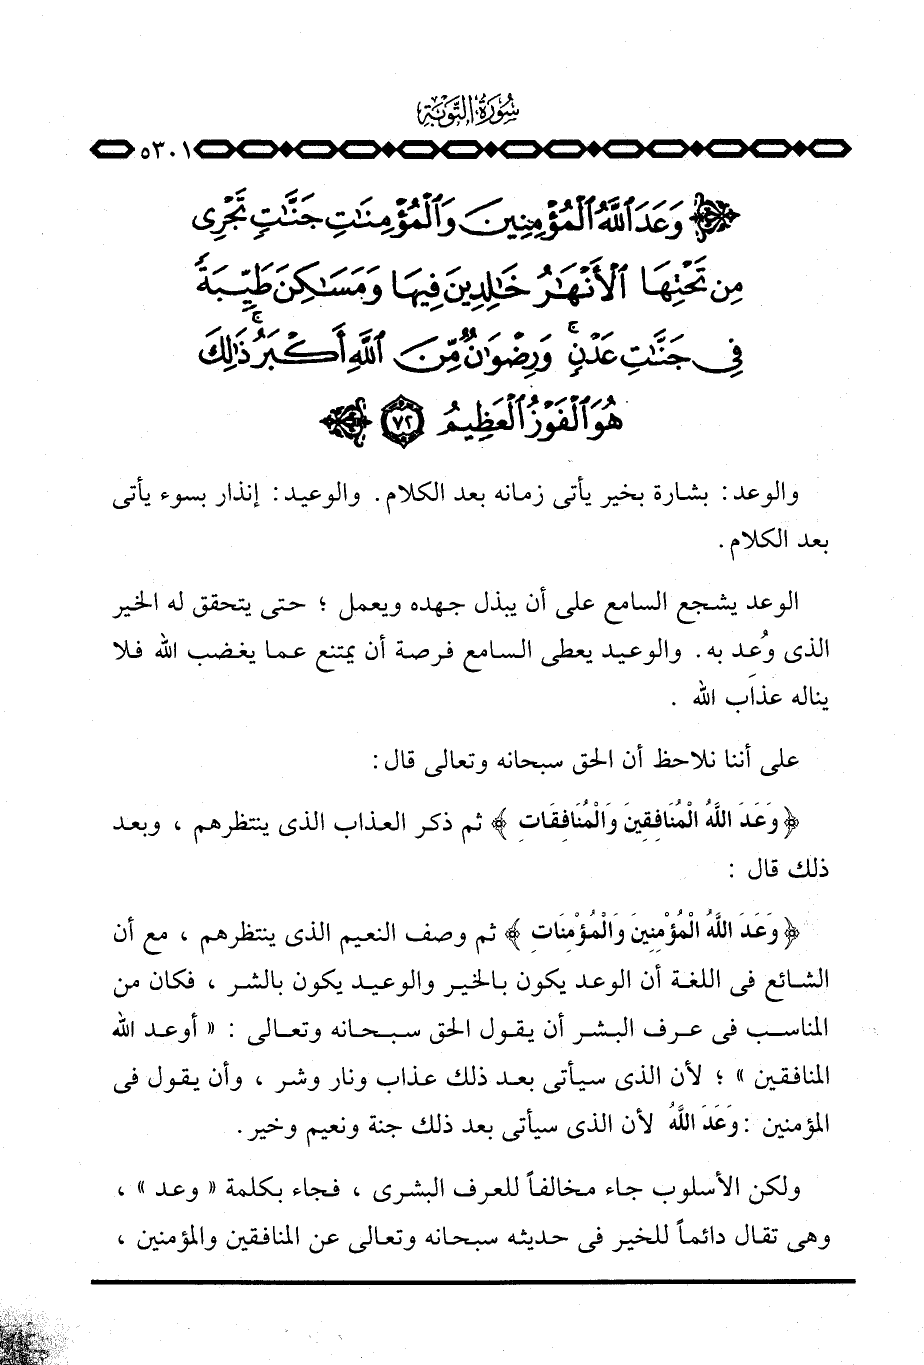 سورة التوبة
٥٣٠١
وَعَدَ اللَّهُ الْمُؤْمِنِينَ وَالْمُؤْمِنَاتِ جَنَّاتٍ تَجْرِي
مِن تَحْتِهَا الْأَنْهَارُ خَالِدِينَ فِيهَا وَمَسَاكِنَ طَيِّبَةً
فِي جَنَّاتِ عَدْنٍ ۚ وَرِضْوَانٌ مِّنَ اللَّهِ أَكْبَرُ ۚ ذَٰلِكَ
هُوَ الْفَوْزُ الْعَظِيمُ ٧٢
والوعد : بشارة بخير يأتى زمانه بعد الكلام . والوعيد : إنذار بسوء يأتى
بعد الكلام .
الوعد يشجع السامع على أن يبذل جهده ويعمل ؛ حتى يتحقق له الخير
الذى وُعد به . والوعيد يعطى السامع فرصة أن يمتنع عما يغضب الله فلا
يناله عذاب الله .
على أننا نلاحظ أن الحق سبحانه وتعالى قال :
﴿ وَعَدَ اللَّهُ الْمُنَافِقِينَ وَالْمُنَافِقَاتِ ﴾ ثم ذكر العذاب الذى ينتظرهم ، وبعد
ذلك قال :
﴿ وَعَدَ اللَّهُ الْمُؤْمِنِينَ وَالْمُؤْمِنَاتِ ﴾ ثم وصف النعيم الذى ينتظرهم ، مع أن
الشائع فى اللغة أن الوعد يكون بالخير والوعيد يكون بالشر ، فكان من
المناسب فى عرف البشر أن يقول الحق سبحانه وتعالى : « أوعد الله
المنافقين » ؛ لأن الذى سيأتى بعد ذلك عذاب ونار وشر ، وأن يقول فى
المؤمنين : وَعَدَ اللَّهُ لأن الذى سيأتى بعد ذلك جنة ونعيم وخير .
ولكن الأسلوب جاء مخالفاً للعرف البشرى ، فجاء بكلمة « وعد » ،
وهى تقال دائماً للخير فى حديثه سبحانه وتعالى عن المنافقين والمؤمنين ،